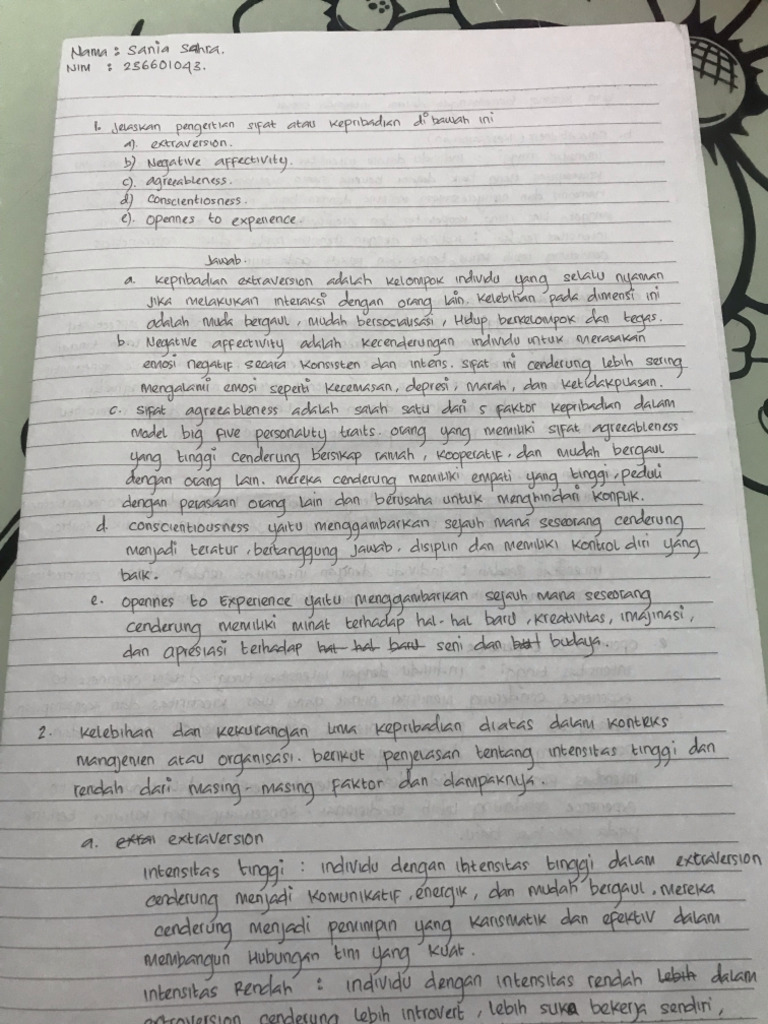 Nama : Sania Sahra.
NIM : 236601043.
1. Jelaskan pengertian sifat atau kepribadian di bawah ini
a). extraversion.
b) Negative affectivity.
c). agreeableness.
d) conscientiosness.
e). opennes to experience.
Jawab.
a. kepribadian extraversion adalah kelompok individu yang selalu nyaman
jika melakukan interaksi dengan orang lain. kelebihan pada dimensi ini
adalah muda bergaul, mudah bersosialisasi, Hidup berkelompok dan tegas.
b. Negative affectivity adalah kecenderungan individu untuk merasakan
emosi negatif secara konsisten dan intens. sifat ini cenderung lebih sering
mengalami emosi seperti kecemasan, depresi, marah, dan ketidakpuasan.
c. sifat agreeableness adalah salah satu dari 5 faktor kepribadian dalam
model big five personality traits. orang yang memiliki sifat agreeableness
yang tinggi cenderung bersikap ramah, kooperatif, dan mudah bergaul
dengan orang lain. mereka cenderung memiliki empati yang tinggi, peduli
dengan perasaan orang lain dan berusaha untuk menghindari konflik.
d. conscientiousness yaitu menggambarkan sejauh mana seseorang cenderung
menjadi teratur, bertanggung jawab, disiplin dan memiliki kontrol diri yang
baik.
e. opennes to Experience yaitu menggambarkan sejauh mana seseorang
cenderung memiliki minat terhadap hal-hal baru, kreativitas, imajinasi,
dan apresiasi terhadap hal-hal baru seni dan budaya.
2. kelebihan dan kekurangan lima kepribadian diatas dalam konteks
mangjemen atau organisasi. berikut penjelasan tentang intensitas tinggi dan
rendah dari masing-masing faktor dan dampaknya.
a. extraversion
intensitas tinggi : individu dengan ibtensitas tinggi dalam extraversion
cenderung menjadi komunikatif, energik, dan mudah bergaul. mereka
cenderung menjadi pemimpin yang karismatik dan efektiv dalam
membangun Hubungan tim yang kuat.
intensitas Rendah : individu dengan intensitas rendah lebih dalam
extroversion cenderung lebih introvert, lebih suka bekerja sendiri,